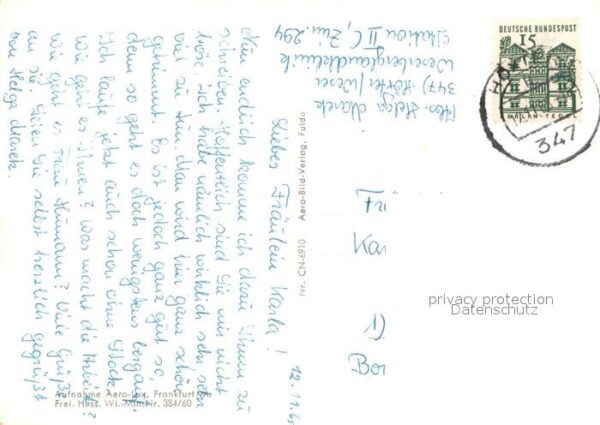 12.11.65
Liebes Fräulein Karla!
Nun endlich komme ich dazu Ihnen zu
schreiben. Hoffentlich sind Sie mir nicht
böse. Ich habe nämlich wirklich sehr
viel zu tun. Man wird hier ganz schön
getrimmt. Es ist jedoch ganz gut so,
denn so geht es doch wenigstens bergauf.
Ich laufe jetzt auch schon ohne Stock.
Wie geht es Ihnen? Was macht die Arbeit?
Wie geht es Frau Humann? Viele Grüße
an sie. Seien Sie selbst herzlich gegrüßt
von Helga Marek.
Aufnahme Aero-Lux, Frankfurt
Frei. Hess. Wi.-Min. Nr. 384/60
Nr. CN-6910 Aero-Bild-Verlag, Fulda
Abs. Helga Marek
347) Höxter/Weser
Weserberglandklinik
Station II C, Zim. 294
DEUTSCHE BUNDESPOST
15
347
Bor
privacy protection
Datenschutz